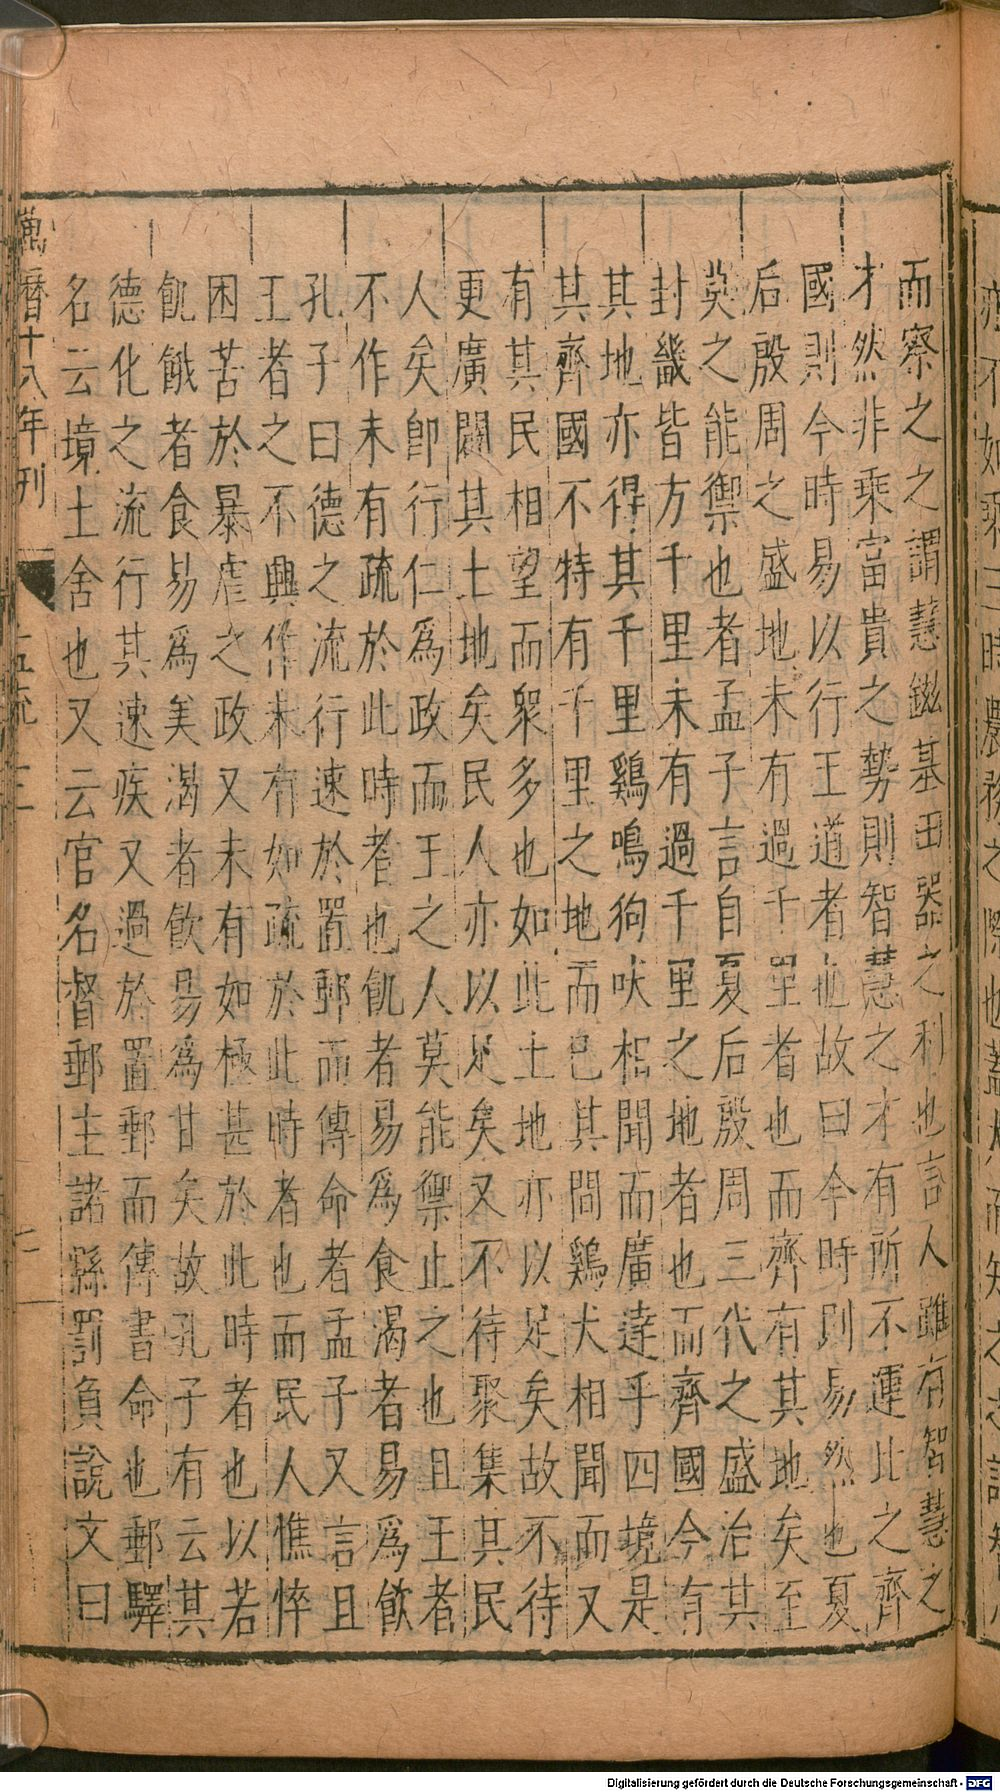 而察之之謂慧鎡基田器之利也言人雖有智慧之
才然非乘富貴之勢則智慧之才有所不運此之齊
國則今時易以行王道者也故曰今時則易然也夏
后殷周之盛地未有過千里者也而齊有其地矣至
莫之能禦也者孟子言自夏后殷周三代之盛治其
封畿皆方千里未有過千里之地者也而齊國今有
其地亦得其千里鷄鳴狗吠相聞而廣達乎四境是
其齊國不特有千里之地而已其間鷄犬相聞而又
有其民相望而衆多也如此土地亦以足矣故不待
更廣闢其土地矣民人亦以足矣又不待聚集其民
人矣卽行仁爲政而王之人莫能禦止之也且王者
不作未有疏於此時者也飢者易爲食渴者易爲飲
孔子曰德之流行速於置郵而傳命者孟子又言且
王者之不興作未有如疏於此時者也而民人憔悴
困苦於暴虐之政又未有如極甚於此時者也以若
飢餓者食易爲美渴者飲易爲甘矣故孔子有云其
德化之流行其速疾又過於置郵而傳書命也郵驛
名云境土舍也又云官名督郵主諸縣罰負說文曰
萬曆十八年刊
Digitalisierung gefördert durch die Deutsche Forschungsgemeinschaft - DFG